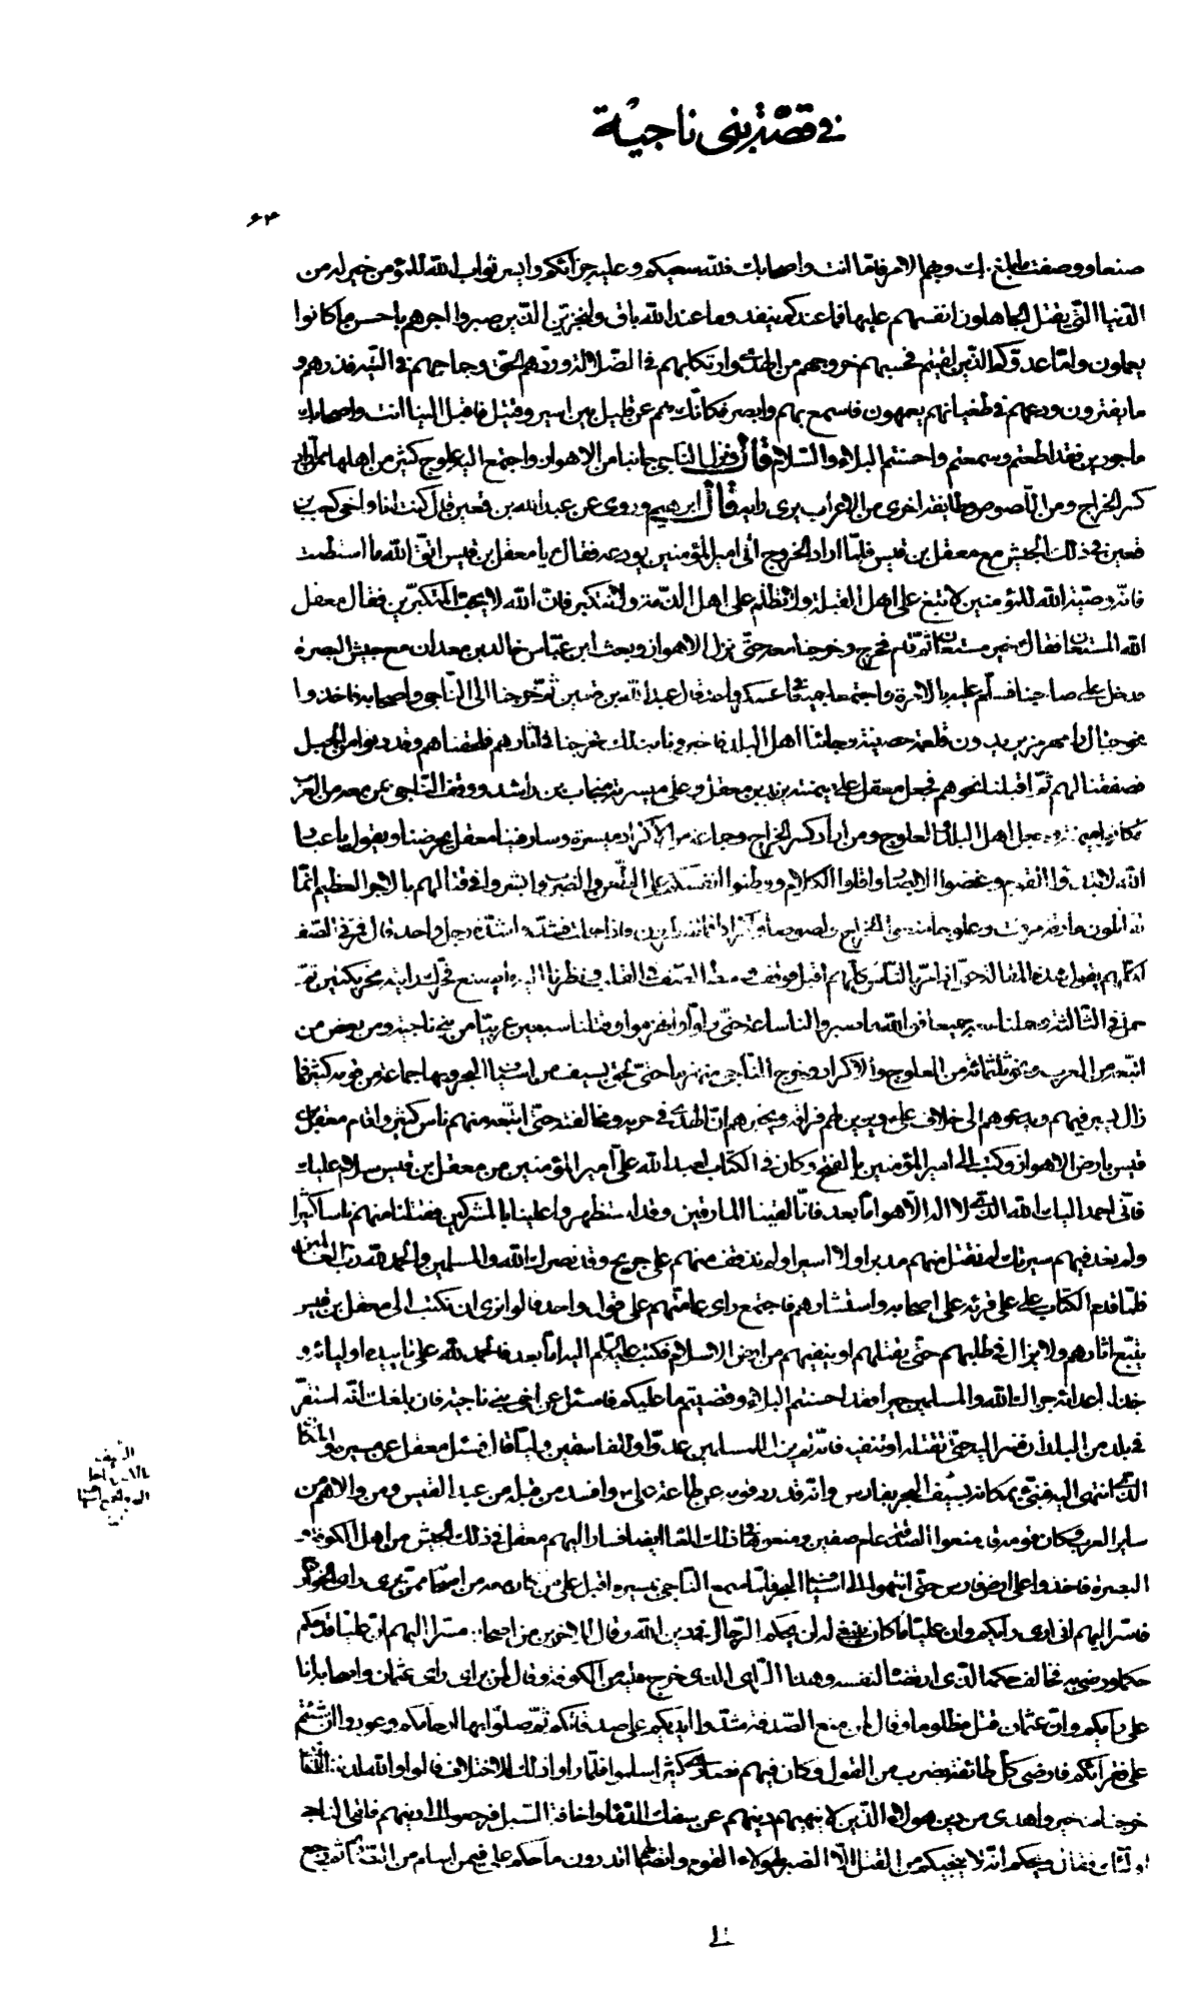 في قصّة بني ناجية
٦٣
وصفت ما بلغ بك وبهم الأمر فامّا انت واصحابك فلله سعيكم وعليه جزائكم وايسر ثواب الله للمؤمن خير له من
الدّنيا الّتي يقتل الجاهلون انفسهم عليها فما عندكم ينفد وما عند الله باق ولنجزينّ الّذين صبروا اجرهم باحسن ما كانوا
يعملون وامّا عدوّكم الّذين لقيتم فحسبهم خروجهم من الهدى وارتكابهم في الضّلالة وردّهم الحقّ وجماحهم في التّيه فذرهم و
ما يفترون ودعهم في طغيانهم يعمهون فاسمع بهم وابصر فكانّك بهم عن قليل بين اسير وقتيل فاقبل الينا انت واصحابك
ماجورين فقد اطعتم وسمعتم واحسنتم البلاء والسّلام قال ونزل الناجي جانبا من الاهواز واجتمع اليه علوج كثير من اهلها ممّن اراد
كسر الخراج ومن اللّصوص وطايفة اخرى من الاعراب يرى رايه قال ابرهيم وروى عن عبدالله بن قعين قال كنت انا واخي كعب بن
قعين في ذلك الجيش مع معقل بن قيس فلمّا اراد الخروج اتى امير المؤمنين يودعه فقال يا معقل بن قيس اتّق الله ما استطعت
فانّه وصيّة الله للمؤمنين لا تبغ على اهل القبلة ولا تظلم على اهل الذّمة ولا تتكبر فانّ الله لا يحبّ المتكبّرين فقال معقل
الله المستعان فقال خير مستعان ثمّ قام فخرج وخرجنا معه حتّى نزل الاهواز وبعث ابن عبّاس خالد بن معدان مع جيش البصرة
فدخل على صاحبنا فسلّم عليه بالامرة واجتمعا جميعا في عسكر واحد قال عبدالله بن قعين ثمّ خرجنا الى النّاجي واصحابه فاخذوا
نحو جبال رامهرمز يريدون قلعة حصينة وجائنا اهل البلد فاخبرونا بذلك فخرجنا في آثارهم فلحقناهم وقد دنوا من الجبل
فصففنا لهم ثمّ اقبلنا نحوهم فجعل معقل على ميمنته يزيد بن معقل وعلى ميسرته منجاب بن راشد ووقف النّاجي بمن معه من العرب
فكانوا ميمنة وجعل اهل البلد والعلوج ومن اراد كسر الخراج وجماعة من الاكراد ميسرة وسار فينا معقل يحرضنا ويقول يا عباد
الله لا تبدؤا القوم وغضوا الابصار واقلوا الكلام ووطنوا انفسكم على الطّعن والضّرب وابشروا في قتالهم بالاجر العظيم انّما
تقاتلون مارقة مرقت وعلوجا منعوا الخراج ولصوصا واكرادا فما تنتظرون فاذا حملت فشدّوا شدّة رجل واحد قال فمرّ في الصّف
يكلّمهم يقول هذه المقالة حتّى اذا مرّ بالنّاس كلّهم اقبل فوقف وسط الصّف في القلب ونظرنا اليه ما يصنع فحرّك رايته تحريكتين ثمّ
حمل في الثّالثة وحملنا معه جميعا فوالله ما صبروا لنا ساعة حتّى ولّوا وانهزموا وقتلنا سبعين عربيّا من بني ناجية ومن بعض من
اتّبعه من العرب ونحو ثلثمائة من العلوج والاكراد وخرج النّاجي منهزما حتّى لحق بسيف من اسياف البحر وبها جماعة من قومه كثير فما
زال يسير فيهم ويدعوهم الى خلاف علي ويزيّن لهم فراقه ويخبرهم انّ الهدى في حربه ومخالفته حتّى اتّبعه منهم ناس كثير واقام معقل بن
قيس بارض الاهواز وكتب الى امير المؤمنين بالفتح وكان في الكتاب لعبدالله علي امير المؤمنين من معقل بن قيس سلام عليك
فانّي احمد اليك الله الّذي لا اله الّا هو امّا بعد فانّا لقينا المارقين وقد استظهروا علينا بالمشركين فقتلنا منهم ناسا كثيرا
ولم نعد فيهم سيرتك لم نقتل منهم مدبرا ولا اسيرا ولم نذفف منهم على جريح وقد نصرك الله والمسلمين والحمد لله ربّ العالمين
فلمّا قدم الكتاب على علي قرئه على اصحابه واستشارهم فاجتمع راي عامّتهم على قول واحد قالوا نرى ان تكتب الى معقل بن قيس
يتّبع آثارهم ولا يزال في طلبهم حتّى يقتلهم او ينفيهم من ارض الاسلام فكتب عليه السّلم اليه امّا بعد فالحمد لله على تاييده اوليائه و
خذله اعدائه جزاك الله والمسلمين خيرا فقد احسنتم البلاء وقضيتم ما عليكم فاسئل عن اخي بني ناجية فان بلغك انّه استقرّ
في بلد من البلدان فسر اليه حتّى تقتله او تنفيه فانّه لم يزل للمسلمين عدوّا وللفاسقين وليّا قال فسئل معقل عن مسيره والمكان
الّذي انتهى اليه فنبّئ بمكانه بسيف البحر بفارس وانّه قد ردّ قومه عن طاعة علي وافسد من قبله من عبد القيس ومن والاهم من
ساير العرب وكان قومه قد منعوا الصّدقة عام صفين ومنعوها في ذلك العام ايضا فسار اليهم معقل في ذلك الجيش من اهل الكوفة و
البصرة فاخذوا على ارض فارس حتّى انتهوا الى اسياف البحر فلمّا سمع النّاجي بمسيره اقبل على من كان معه من اصحابه ممّن يرى راي الخوارج
فاسّر اليهم انّي ارى رايكم وانّ عليّا ما كان ينبغي له ان يحكم الرّجال في دين الله وقال للاخرين من اصحابه مسرّا اليهم انّ عليّا قد حكم
حكما ورضي به فخالف حكمه الّذي ارتضاه لنفسه وهذا الرّاي الذي خرج عليه من الكوفة وقال لمن يرى راي عثمان واصحابه انا
على رايكم وانّ عثمان قتل مظلوما وقال لمن منع الصّدقة شدّوا ايديكم على صدقاتكم ثمّ صلوا بها ارحامكم وعودوا ان شئتم
على فقرائكم فارضى كلّ طائفة بضرب من القول وكان فيهم نصارى كثير اسلموا فلمّا راوا ذلك الاختلاف قالوا والله لديننا الّذي
خرجنا منه خير واهدى من دين هؤلاء الّذين لا ينهيهم دينهم عن سفك الدّماء واخافة السّبل فرجعوا الى دينهم فلقي الناجي
اولئك فقال ويحكم انّه لا ينجيكم من القتل الّا الصّبر لهؤلاء القوم ولقتالهم اتدرون ما حكم علي فيمن اسلم من النّصارى ثمّ رجع